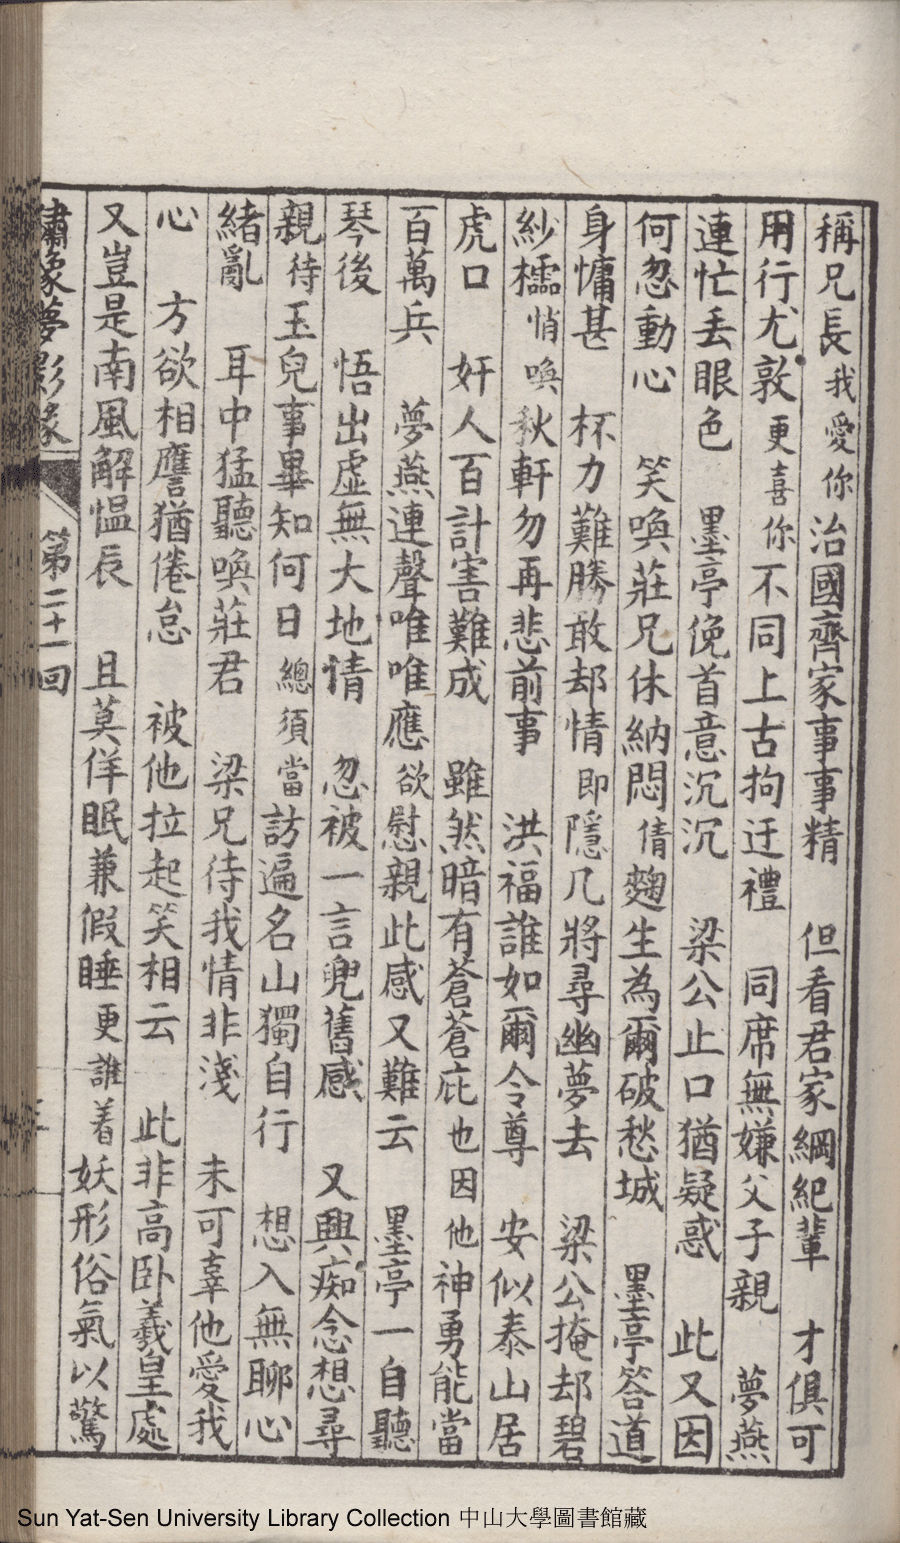 稱兄長我愛你治國齊家事事精　但看君家綱紀輩　才俱可
用行尤敦更喜你不同上古拘迂禮　同席無嫌父子親　夢燕
連忙丢眼色　墨亭俛首意沉沉　梁公止口猶疑惑　此又因
何忽動心　笑喚莊兄休納悶倩麴生為爾破愁城　墨亭答道
身慵甚　杯力難勝敢却情即隱几將尋幽夢去　梁公掩却碧
紗櫺悄喚秋軒勿再悲前事　洪福誰如爾令尊　安似泰山居
虎口　奸人百計害難成　雖然暗有蒼蒼庇也因他神勇能當
百萬兵　夢燕連聲唯唯應欲慰親此感又難云　墨亭一自聽
琴後　悟出虛無大地情　忽被一言兜舊感　又興痴念想尋
親待玉兒事畢知何日總須當訪遍名山獨自行　想入無聊心
緒亂　耳中猛聽喚莊君　梁兄待我情非淺　未可辜他愛我
心　方欲相譍猶倦怠　被他拉起笑相云　此非高卧羲皇處
又豈是南風解愠辰　且莫佯眠兼假睡更誰着妖形俗氣以驚
繡像夢影緣　第二十一回
Sun Yat-Sen University Library Collection 中山大學圖書館藏